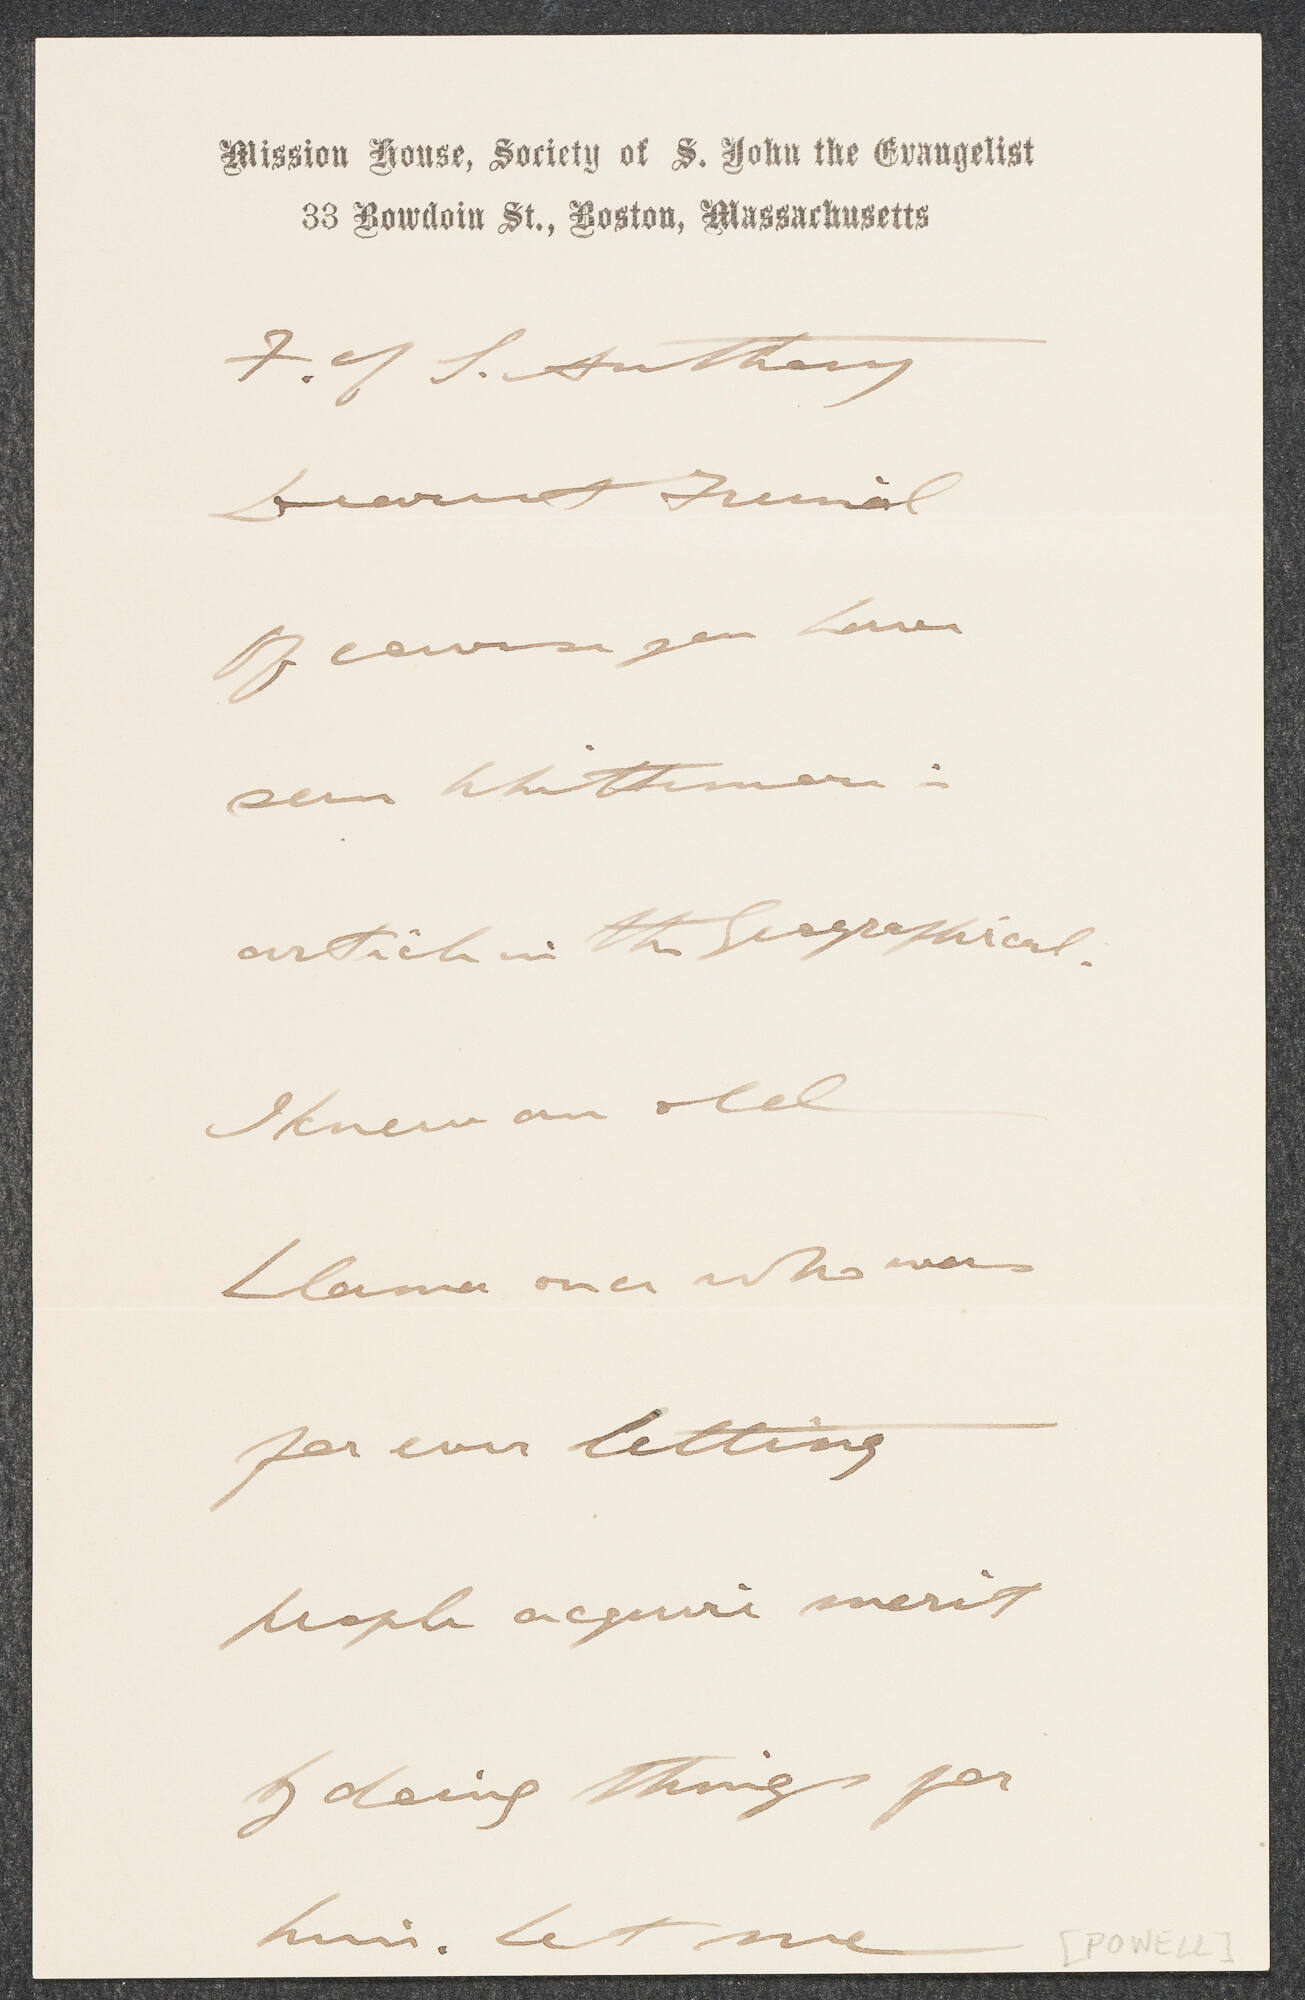 Mission House, Society of S. John the Evangelist
33 Bowdoin St., Boston, Massachusetts
F. of S. Anthony
Dearest Friend
Of course you have
seen Whittemore's
article in the Geographical.
I knew an old
Llama once who was
for ever letting
people acquire merit
by doing things for
him. Let me
[POWELL]